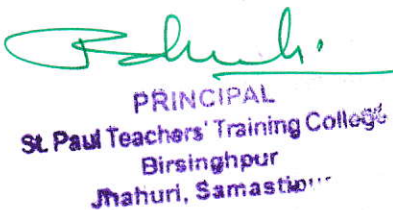 PRINCIPAL
St. Paul Teachers' Training College
Birsinghpur
Jhahuri,